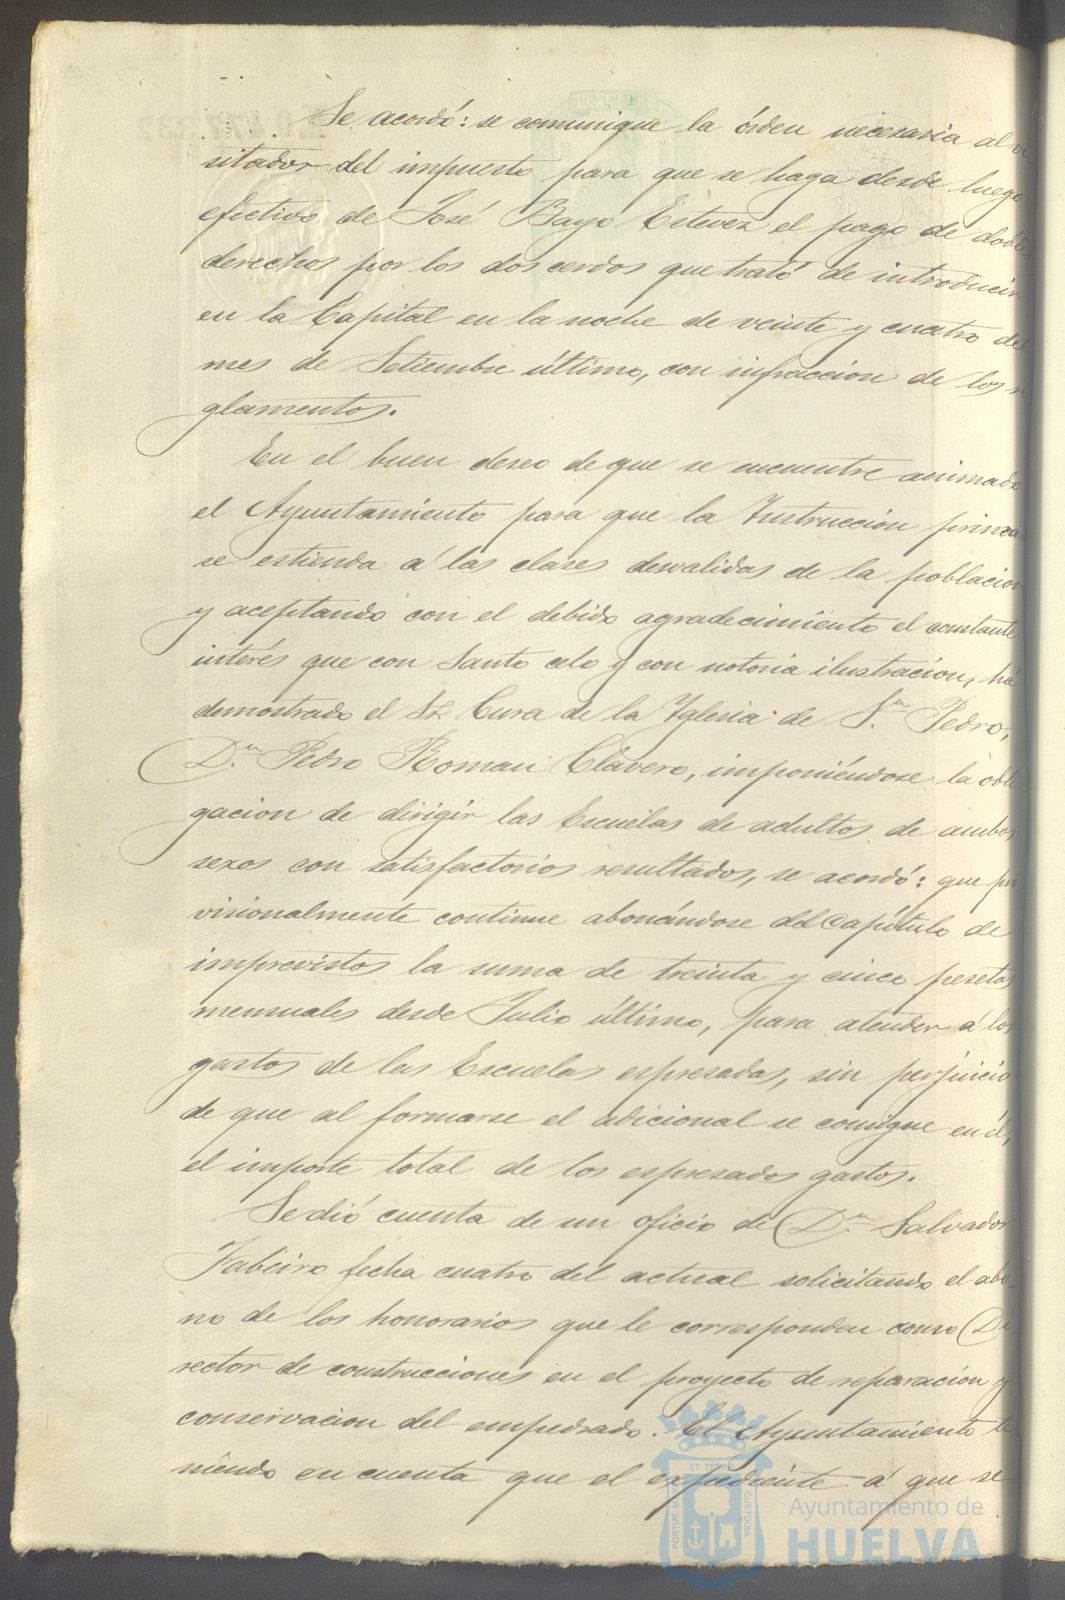 Se acordó: se comunique la órden necesaria al vi
sitador del impuesto para que se haga desde luego
efectivo de José Bayo Estevez el pago de dobles
derechos por los dos cerdos que trató de introducir
en la Capital en la noche de veinte y cuatro del
mes de Setiembre último, con infraccion de los re
glamentos.
En el buen deseo de que se encuentre animado
el Ayuntamiento para que la Instrucción primaria
se estienda á las clases desvalidas de la poblacion
y aceptando con el debido agradecimiento el constante
interés que con santo celo y con notoria ilustración, há
demostrado el Sr. Cura de la Yglesia de Sn. Pedro,
Dn. Pedro Roman Clavero, imponiéndose la obli-
gacion de dirigir las Escuelas de adultos de ambos
sexos con satisfactorios resultados, se acordó: que pro
visionalmente continue abonándose del Capítulo de
imprevistos la suma de treinta y cinco pesetas
mensuales desde Julio último, para atender á los
gastos de las Escuelas espresadas, sin perjuicio
de que al formarse el adicional se consigne en él,
el importe total de los espresados gastos.
Se dió cuenta de un oficio de Dn. Salvador
Fabeiro fecha cuatro del actual solicitando el abo-
no de los honorarios que le corresponden como Di-
rector de construcciones en el proyecto de reparación y
conservacion del empedrado. El Ayuntamiento te
niendo en cuenta que el expediente á que se
Ayuntamiento de
HUELVA